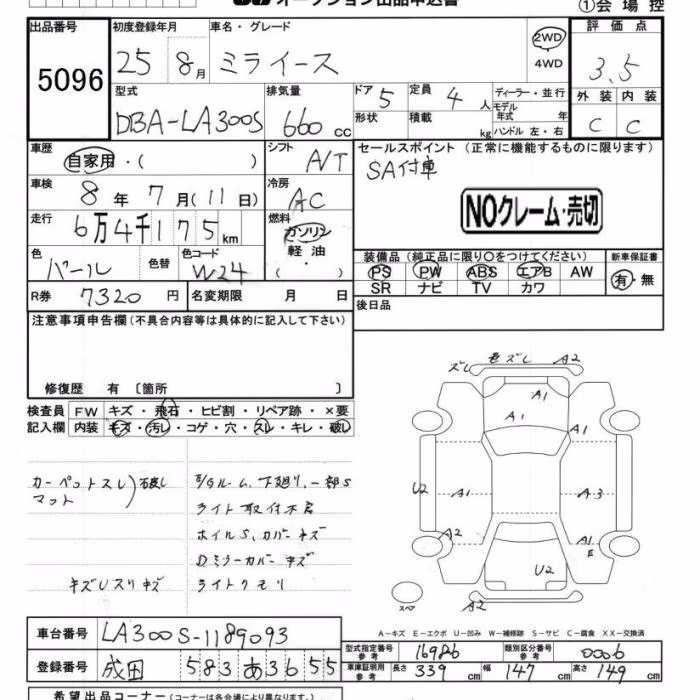 オークション出品申込書
①会場控
出品番号 初度登録年月 車名・グレード 評価点
5096 25 8月 ミライース 2WD・4WD 3.5
型式 排気量 ドア 5 定員 4人 ディーラー・並行
モデル年式 年 外装 内装
DBA-LA300S 660cc 形状 積載 kg ハンドル 左・右 C C
車歴 自家用・( ) シフト A/T セールスポイント (正常に機能するものに限ります)
SA付車
車検 8年7月(11日) 冷房 AC
NOクレーム・売切
走行 6万4千175km 燃料 ガソリン 軽油・( )
色 パール 色替 色コード W24 装備品 (純正品に限り○をつけてください) 新車保証書
PS PW ABS エアB AW 有・無
SR ナビ TV カワ
R券 7320円 名変期限 月 日 後日品
注意事項申告欄(不具合内容等は具体的に記入して下さい)
修復歴 有 〔箇所 〕
ズレ 色ズレ A2
検査員 FW キズ・飛石・ヒビ割・リペア跡・×要
記入欄 内装 キズ・汚れ・コゲ・穴・スレ・キレ・破れ
A1
A1 A1
カーペットスレ) 破れ
マット
E/Gルーム、下廻り、一部S
ライト取付不良
ホイルS、カバーキズ
Dミラーカバーキズ
キズUスリキズ ライトクモリ
U2 A1 A3
A2 A1
E
U2
スペア A2
A-キズ E-エクボ U-凹み W-補修跡 S-サビ C-腐食 XX-交換済
車台番号 LA300S-1189093
型式指定番号 参考 16986 類別区分番号 参考 0006
登録番号 成田 583 あ3655
車庫証明用 参考 長さ 339cm 幅 147cm 高さ 149cm
希望出品コーナー(コーナーは各会場により異なります。)